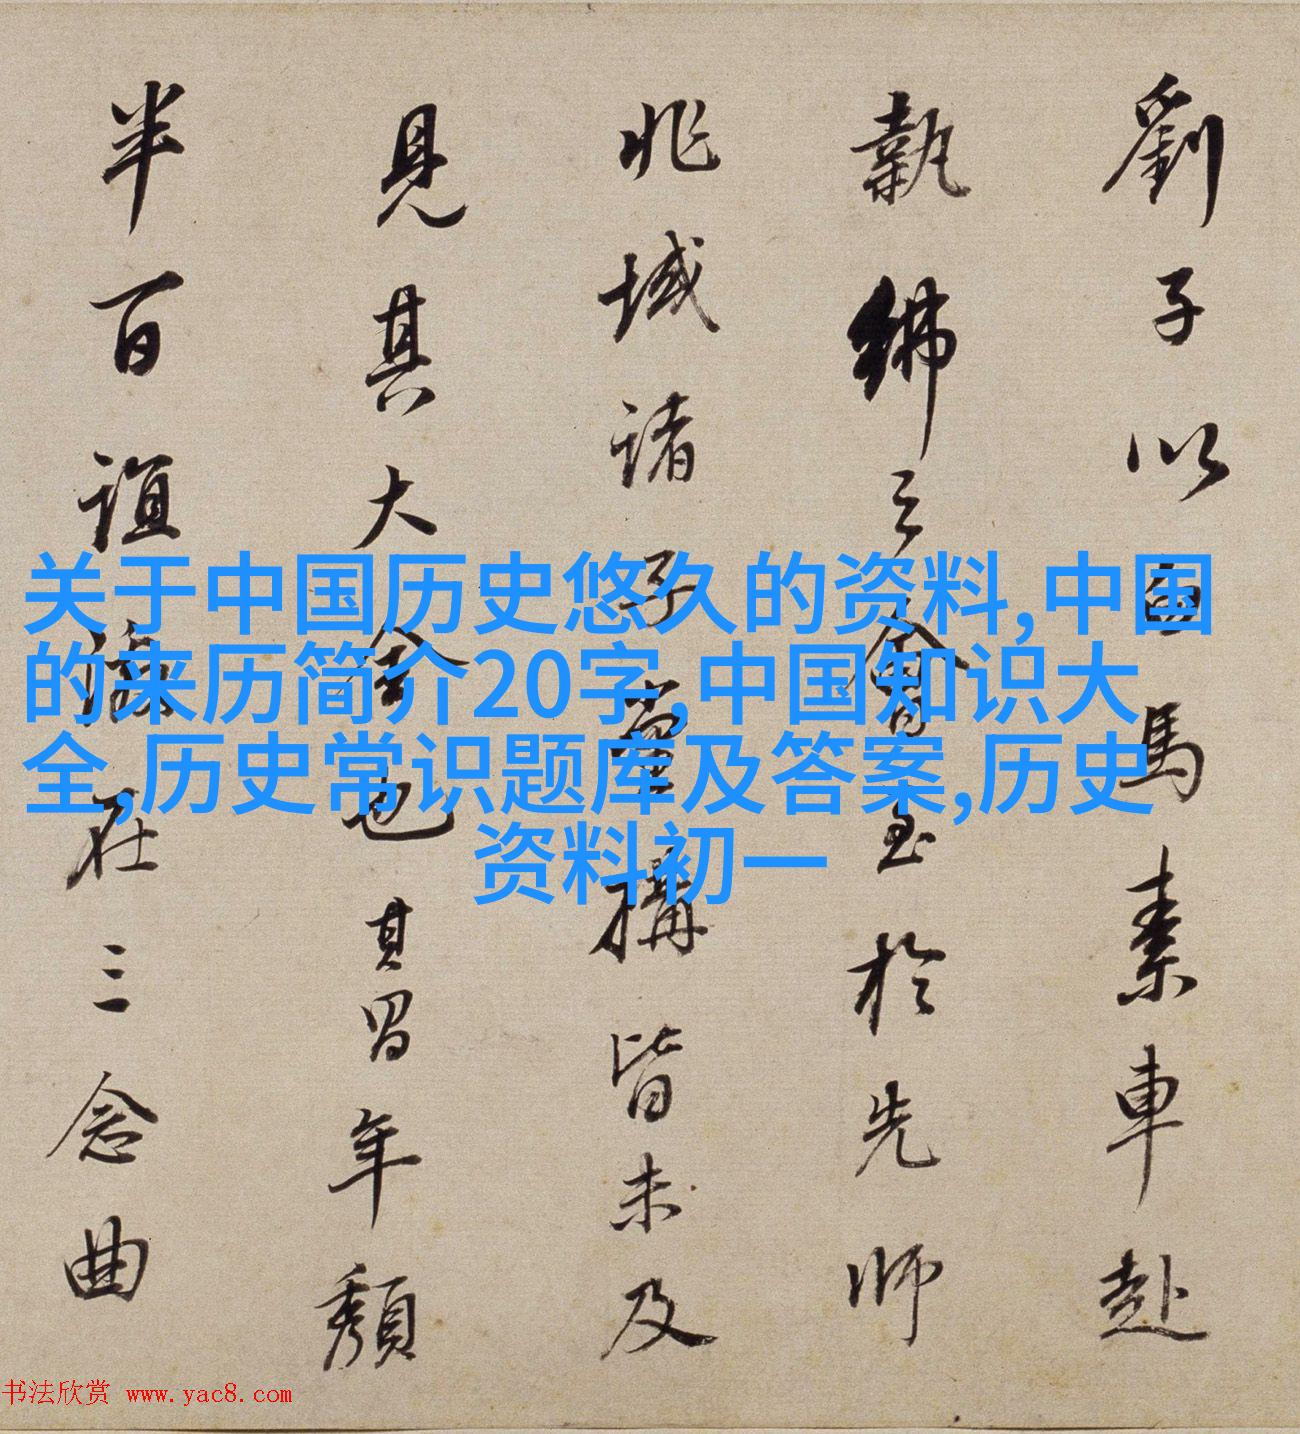 关于中国历史悠久的资料,中国
的来历简介20字,中国知识大
全,历史常识题库及答案,历史
资料初一
劉子以白馬素車赴
執紼之會至於先師
兆域諸子堂構皆未及
見其大全也其冒年頹
半百誼激在三念曲
书法欣赏 www.yac8.com